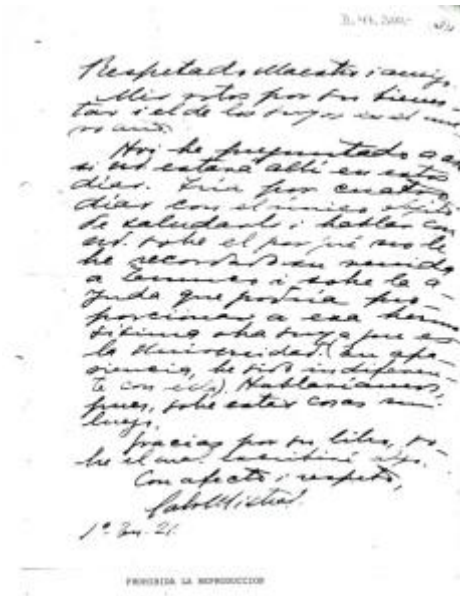 Respetado Maestro i amigo,
Mis votos por su bienes-
tar i el de los suyos en el nue-
vo año.
Hoi he preguntado acá
si Ud estará allí en estos
días. Iría por cuatro
días con el único objeto
de saludarlo i hablar con
Ud sobre el por qué no le
he recordado su venida
a Temuco i sobre la a-
yuda que podría pro-
porcionar a esa hermo-
sísima obra suya que es
la Universidad. (En apa-
riencia, he sido indiferen-
te con ella). Hablaríamos,
pues, sobre estas cosas mui
luego.
Gracias por su libro, so-
bre el cual escribiré algo.
Con afecto i respeto,
Gab. Mistral.
1º En. 21.
PROHIBIDA LA REPRODUCCION